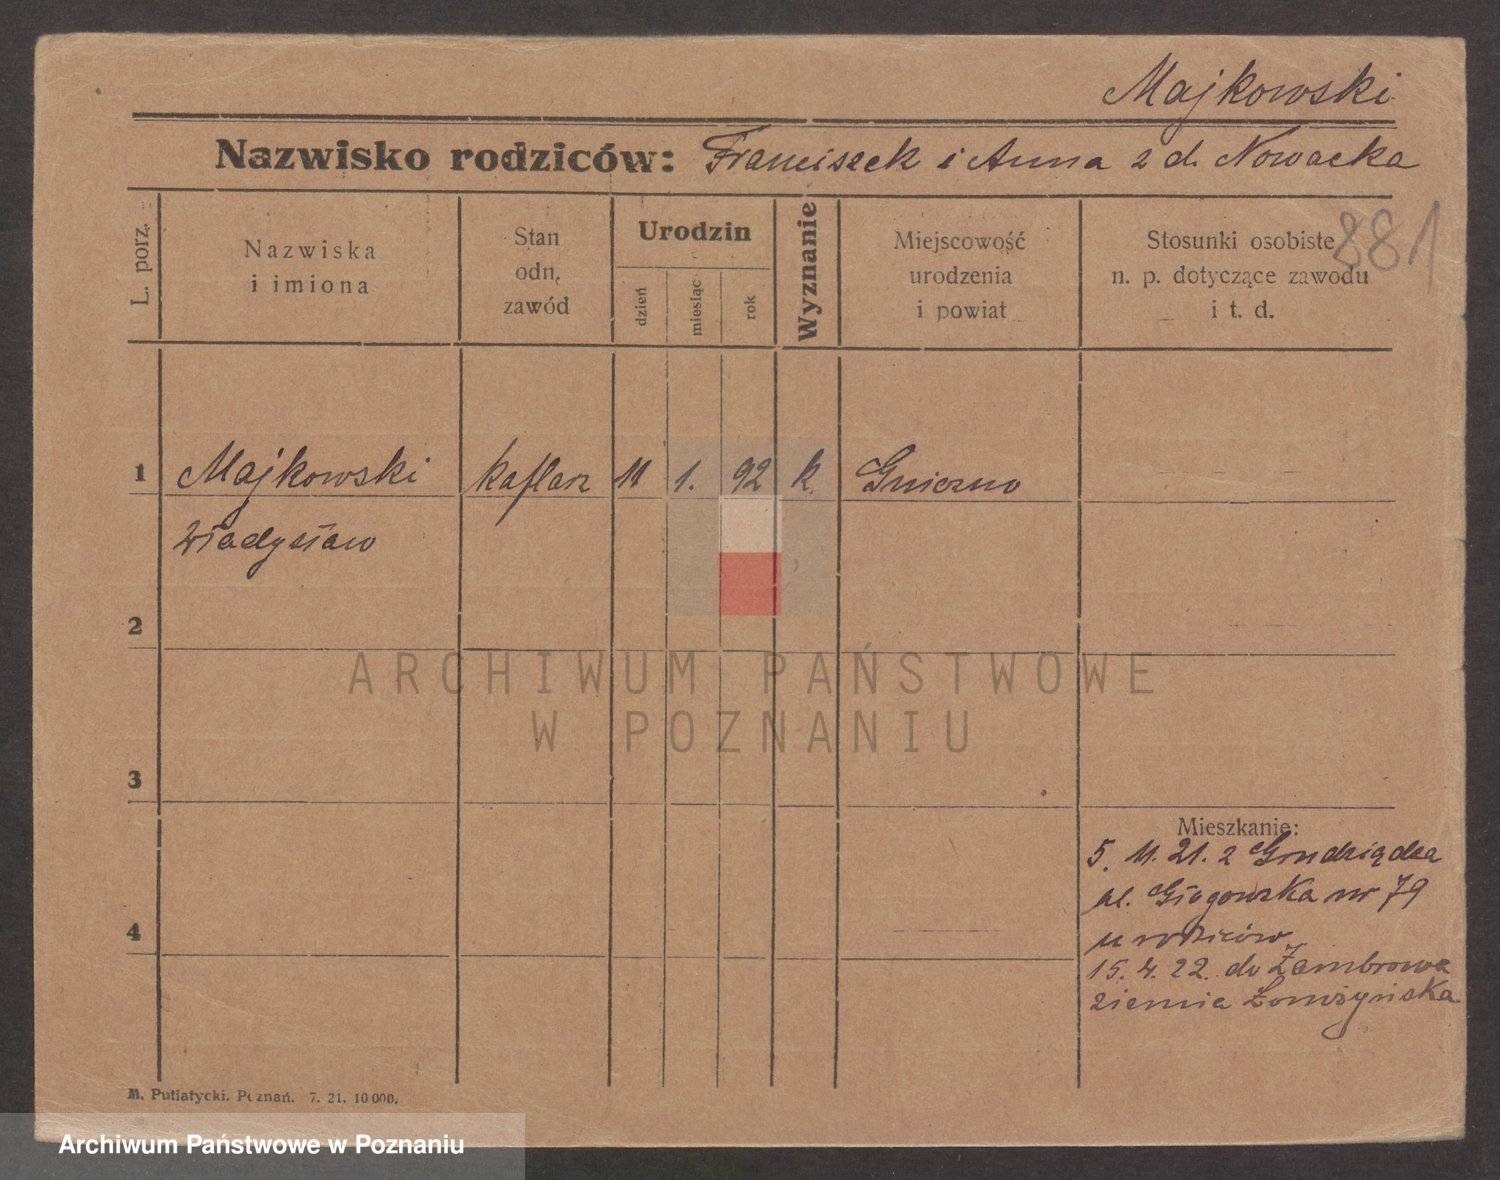 Majkowski
Nazwisko rodziców: Franciszek i Anna z d. Nowacka
881
L. porz.
Nazwiska
i imiona
Stan
odn.
zawód
Urodzin
dzień
miesiąc
rok
Wyznanie
Miejscowość
urodzenia
i powiat
Stosunki osobiste
n. p. dotyczące zawodu
i t. d.
1 Majkowski kaflarz 11 1. 92 k. Gniezno
Władysław
2
3
4
Mieszkanie:
5. 11. 21. z Grudziądza
ul. Głogowska nr 79
u rodziców
15. 4. 22. do Zambrowa
ziemia Łomżyńska
M. Putiatycki. Poznań. 7. 21. 10 000.
ARCHIWUM PAŃSTWOWE
W POZNANIU
Archiwum Państwowe w Poznaniu